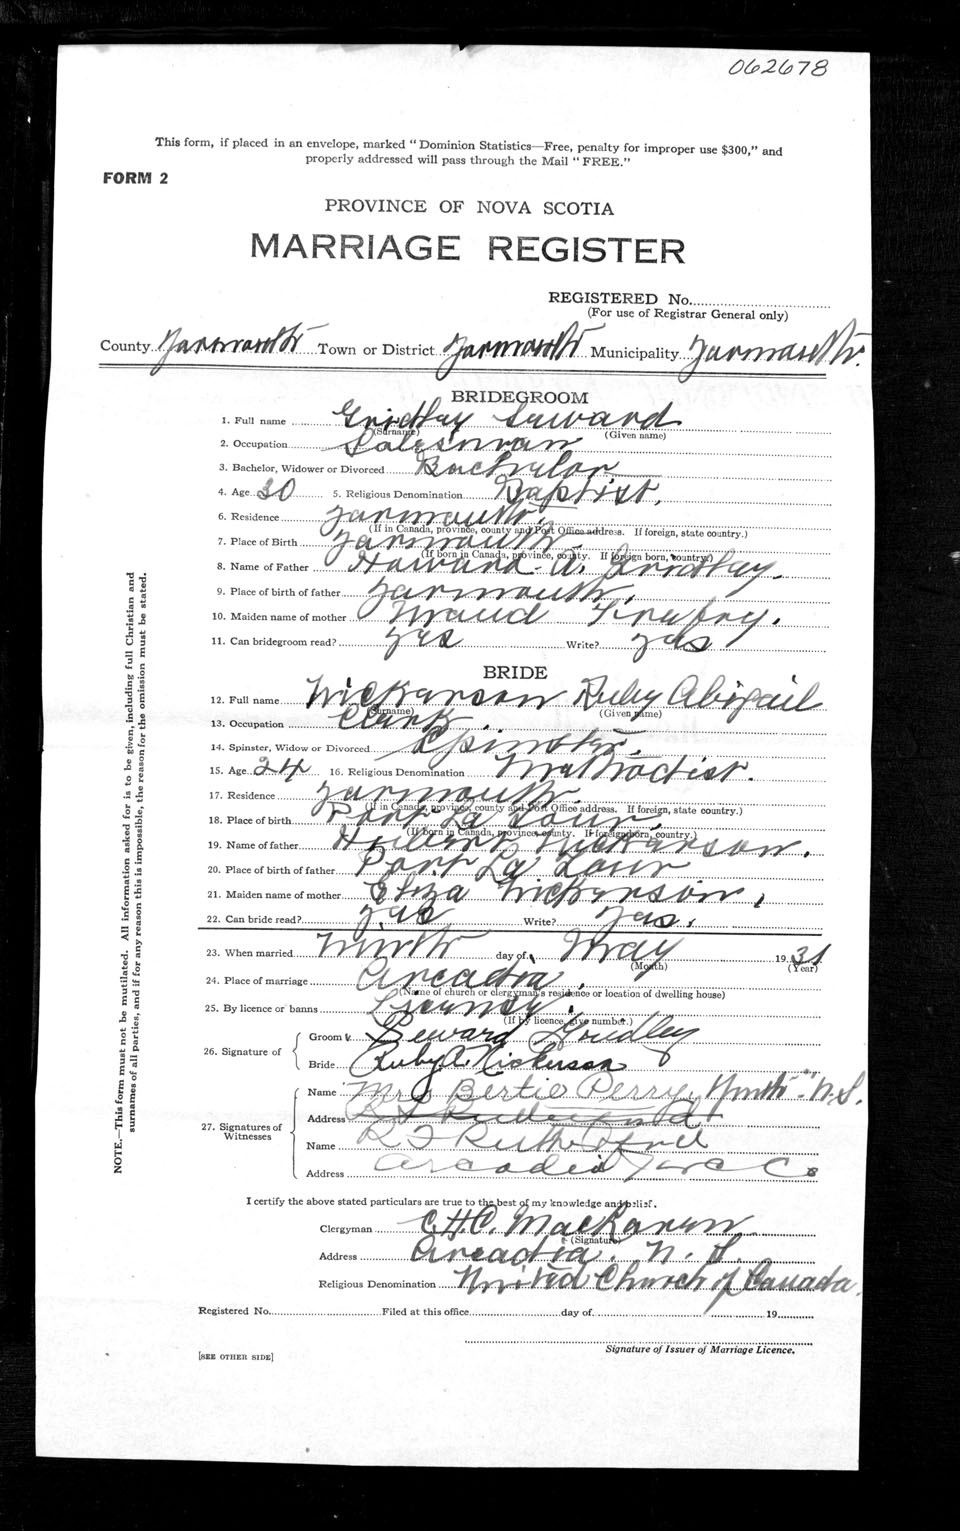 062678
This form, if placed in an envelope, marked "Dominion Statistics—Free, penalty for improper use $300," and
properly addressed will pass through the Mail "FREE."
FORM 2
PROVINCE OF NOVA SCOTIA
MARRIAGE REGISTER
REGISTERED No.
(For use of Registrar General only)
County Yarmouth Town or District Yarmouth Municipality Yarmouth.
BRIDEGROOM
1. Full name Gridley Seward
(Surname) (Given name)
2. Occupation Salesman
3. Bachelor, Widower or Divorced Bachelor
4. Age 30 5. Religious Denomination Baptist.
6. Residence Yarmouth.
(If in Canada, province, county and Post Office address. If foreign, state country.)
7. Place of Birth Yarmouth.
(If born in Canada, province, county. If foreign born, country.)
8. Name of Father Howard A. Gridley.
9. Place of birth of father Yarmouth.
10. Maiden name of mother Maud
11. Can bridegroom read? yes Write? yes.
BRIDE
12. Full name Nickerson Ruby Abigail
(Surname) (Given name)
13. Occupation Clerk.
14. Spinster, Widow or Divorced Spinster.
15. Age 24 16. Religious Denomination Methodist.
17. Residence Yarmouth
(If in Canada, province, county and Post Office address. If foreign, state country.)
18. Place of birth Port La Tour.
(If born in Canada, province, county. If foreign born, country.)
19. Name of father Nickerson.
20. Place of birth of father Port La Tour
21. Maiden name of mother Eliza Nickerson.
22. Can bride read? yes Write? yes.
23. When married Ninth day of May 1931
(Month) (Year)
24. Place of marriage Arcadia.
(Name of church or clergyman's residence or location of dwelling house)
25. By licence or banns License.
(If by licence, give number.)
26. Signature of
Groom Seward Gridley
Bride Ruby A. Nickerson
27. Signatures of Witnesses
Name Mrs Bertie Perry, Yarmth. N.S.
Address
Name R F Rutherford
Address Arcadia Yar Co
I certify the above stated particulars are true to the best of my knowledge and belief.
Clergyman C.H.C. MacLaren
(Signature)
Address Arcadia. N. S.
Religious Denomination United Church of Canada.
Registered No. Filed at this office day of 19
Signature of Issuer of Marriage Licence.
[SEE OTHER SIDE]
NOTE.—This form must not be mutilated. All information asked for is to be given, including full Christian and
surnames of all parties, and if for any reason this is impossible, the reason for the omission must be stated.